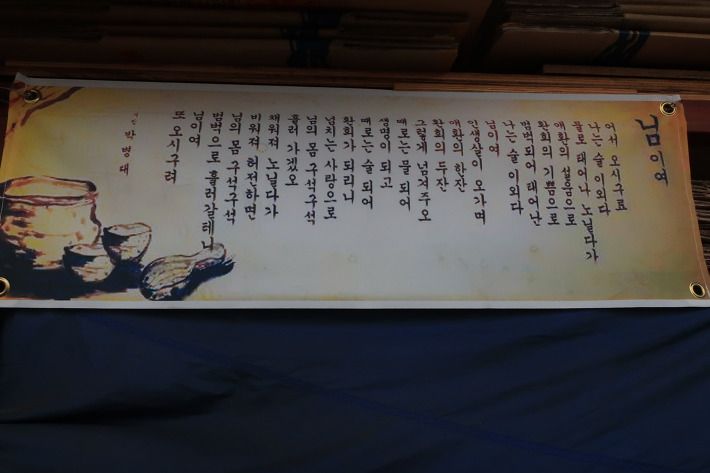 님이요
어서 오시구료
나는 술이요다
물로 태어나 노닐다가
애환의 설움으로
환희의 기쁨으로
범벅되어 태어난
나는 술이요다
님이요
인생살이 오가며
애환의 한잔
환희의 두잔
그렇게 넘겨주오
때로는 물 되어
생명이 되고
때로는 술 되어
환희가 되리니
넘치는 사랑으로
님의 몸 구석구석
흘러 가겠오
채워져 노닐다가
비워져 회전하면
님의 몸 구석구석
범벅으로 흘러갈테니
님이여
또 오시구려
박명대